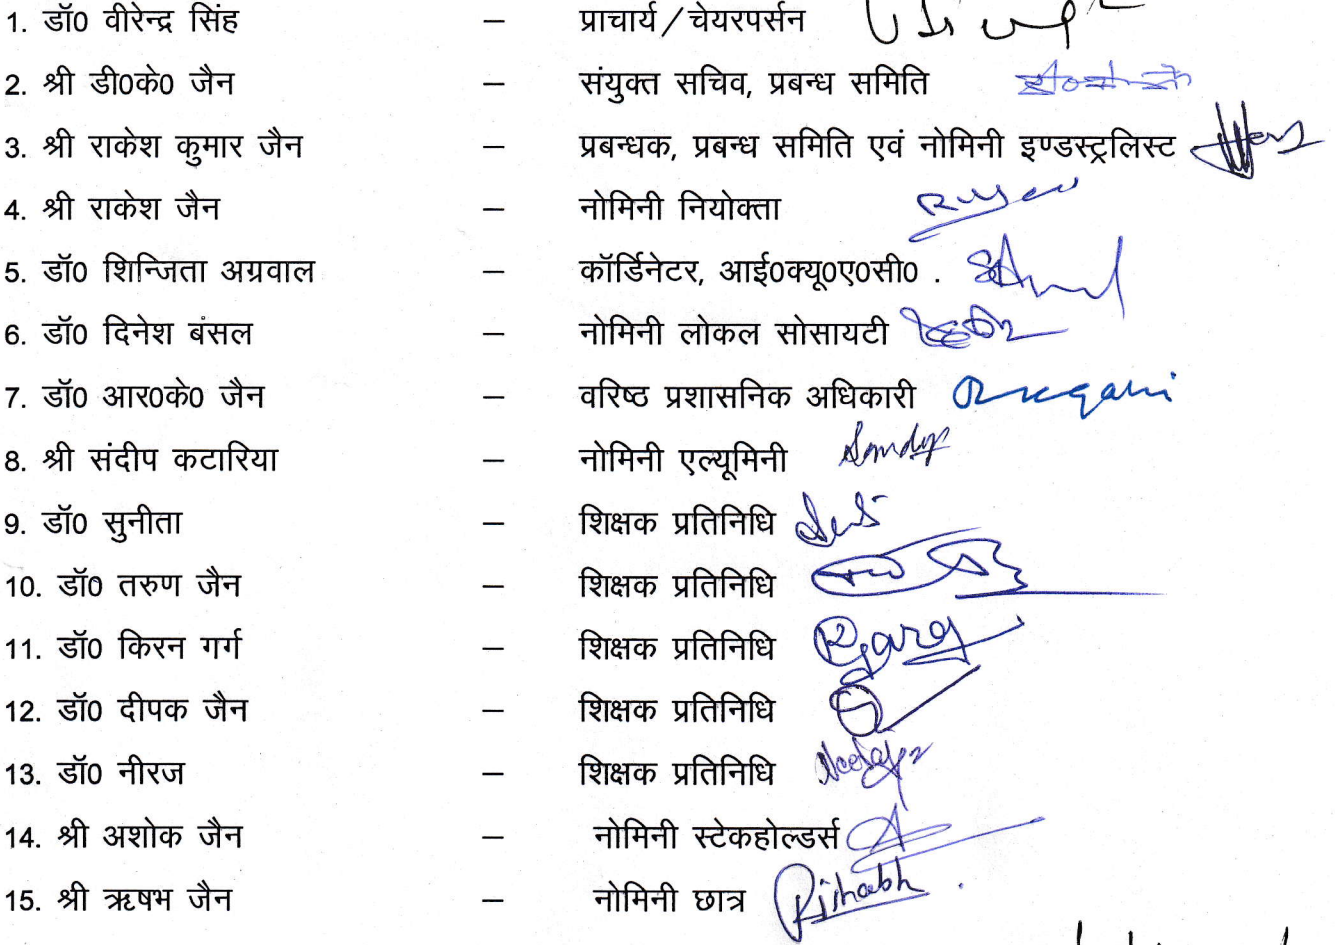 1. डॉ0 वीरेन्द्र सिंह – प्राचार्य/चेयरपर्सन
2. श्री डी0के0 जैन – संयुक्त सचिव, प्रबन्ध समिति
3. श्री राकेश कुमार जैन – प्रबन्धक, प्रबन्ध समिति एवं नोमिनी इण्डस्ट्रलिस्ट
4. श्री राकेश जैन – नोमिनी नियोक्ता
5. डॉ0 शिन्जिता अग्रवाल – कॉर्डिनेटर, आई0क्यू0ए0सी0 .
6. डॉ0 दिनेश बंसल – नोमिनी लोकल सोसायटी
7. डॉ0 आर0के0 जैन – वरिष्ठ प्रशासनिक अधिकारी
8. श्री संदीप कटारिया – नोमिनी एल्यूमिनी
9. डॉ0 सुनीता – शिक्षक प्रतिनिधि
10. डॉ0 तरुण जैन – शिक्षक प्रतिनिधि
11. डॉ0 किरन गर्ग – शिक्षक प्रतिनिधि
12. डॉ0 दीपक जैन – शिक्षक प्रतिनिधि
13. डॉ0 नीरज – शिक्षक प्रतिनिधि
14. श्री अशोक जैन – नोमिनी स्टेकहोल्डर्स
15. श्री ऋषभ जैन – नोमिनी छात्र Rishabh